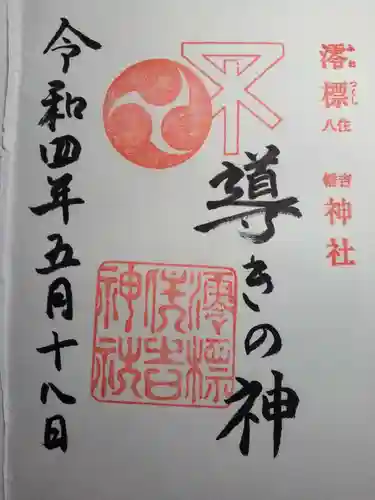 澪標
みおつくし
住吉
八幡
神社
導きの神
澪標
住吉
神社
令和四年五月十八日